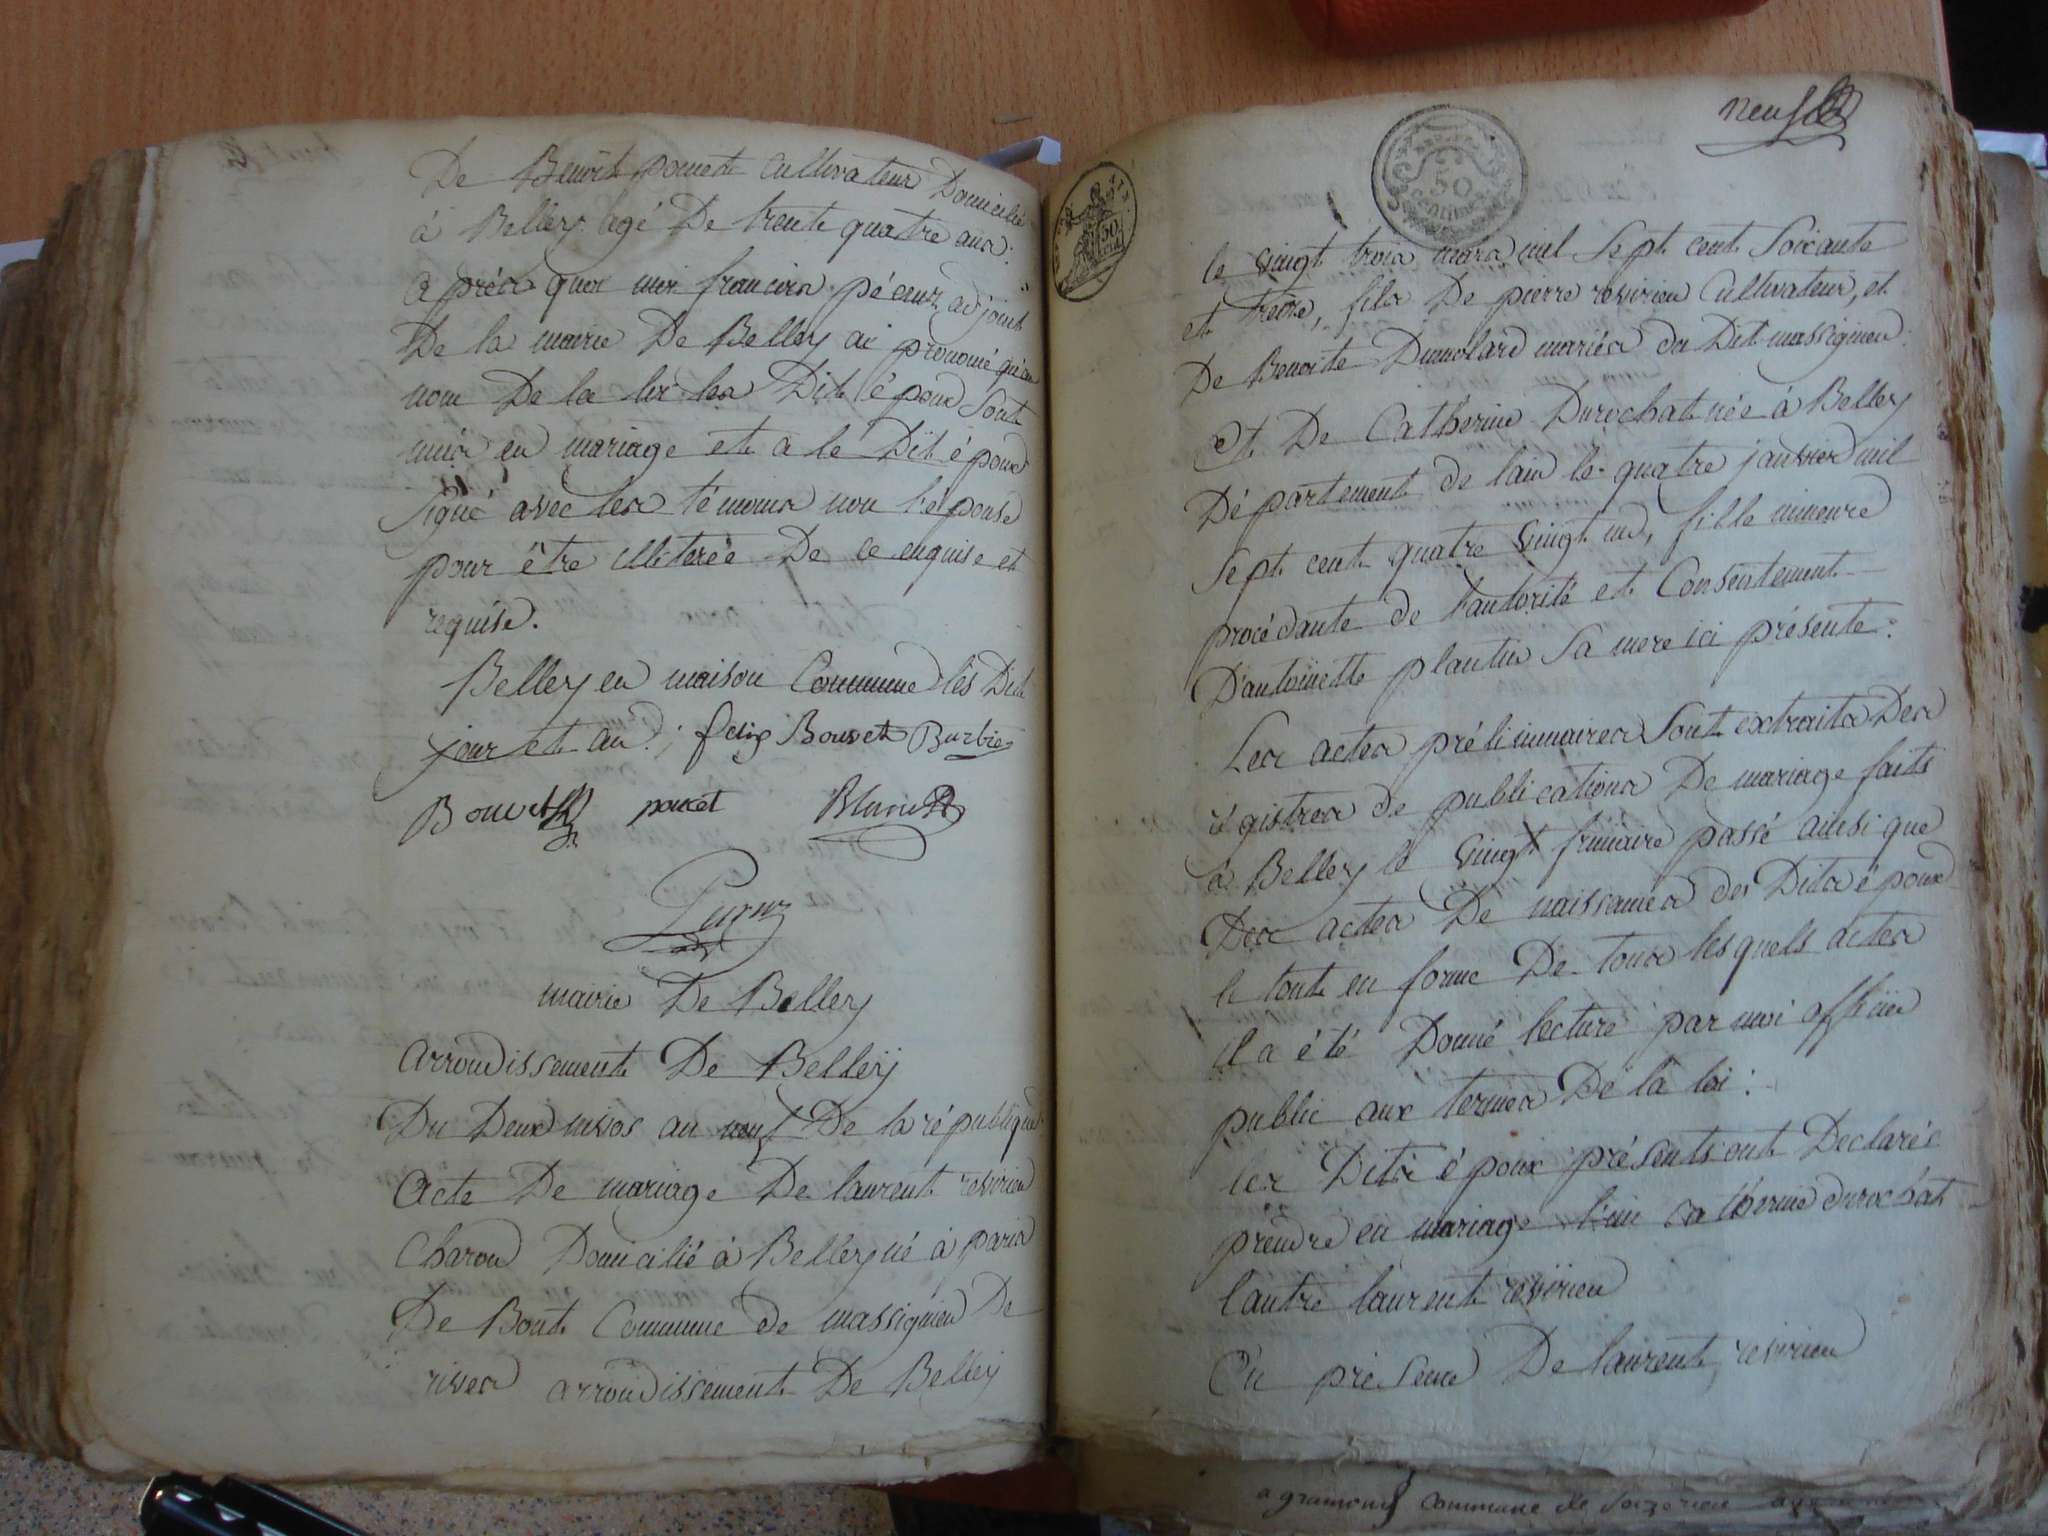 De Benoît poncet cultivateur Domicilié
à Belley agé De trente quatre ans:
après quoi moi francois pécour adjoint
De la mairie De Belley ai prononcé qu'au
nom De la loi les Dit époux Sont
unis en mariage et a le Dit époux
Signé avec les témoins non l'épouse
pour être illeterée De ce enquise et
requise.
Belley en maison Commune lés Dit
jour et an; felix Bouvet Barbier
Bouvet poncet
mairie De Belley
arrondissement De Belleÿ
Du Deux nivos an neuf De la république
acte De mariage De laurent revirieu
charon Domicilié à Belley né à paris
De Bont Commune de massignieu De
rives arrondissement De Belley
neuf
50
Centimes
50
le vingt trois mars mil Sept cent Soixante
et treize, fils De pierre revirieu Cultivateur, et
De Benoite Dumolard mariés du Dit massignieu:
et De Catherine Durochat née à Belley
Département de lain le quatre janvier mil
Sept cent quatre vingt un, fille mineure
procédante de l'autorité et Consentement
D'antoinette plantin Sa mere ici présente:
Les actes préliminaires Sont extraits Des
régistres de publications De mariage faits
à Belley le vingt frimaire passé ainsi que
Des actes De naissances des Dits époux
le tout en forme De tous lesquels actes
il a été Donné lecture par moi officier
public aux termes De la loi:
les Dits époux présents ont Declarés
prendre en mariage l'un catherine durochat
l'autre laurent revirieu
En présence De laurent revirieu
a gramont Commune de